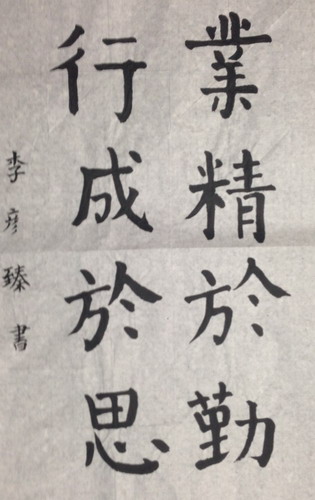 業精於勤
行成於思
李彦臻書